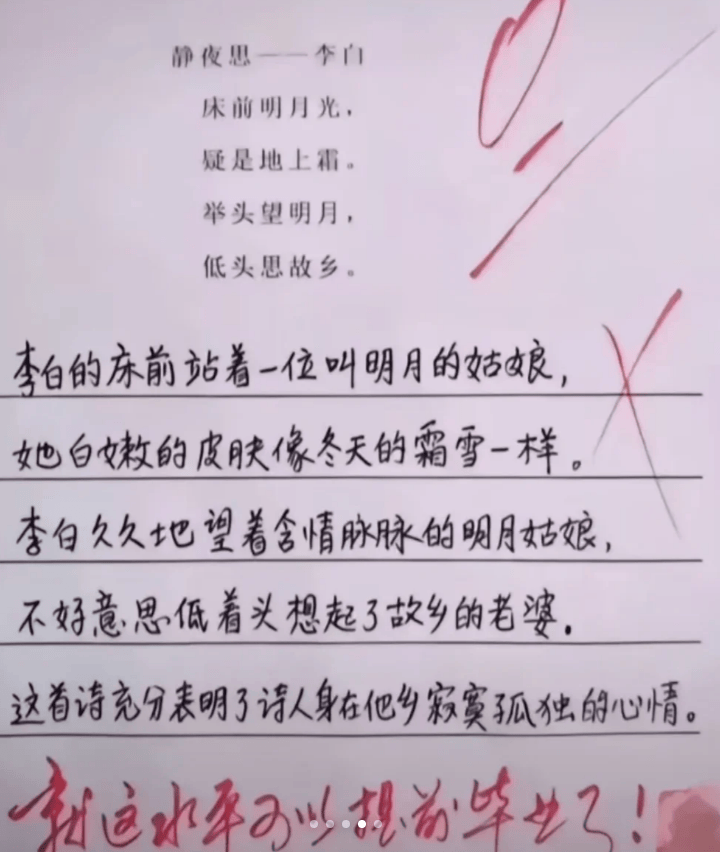 静夜思——李白
床前明月光，
疑是地上霜。
举头望明月，
低头思故乡。
0
李白的床前站着一位叫明月的姑娘，
她白嫩的皮肤像冬天的霜雪一样。
李白久久地望着含情脉脉的明月姑娘，
不好意思低着头想起了故乡的老婆.
这首诗充分表明了诗人身在他乡寂寞孤独的心情。
就这水平可以提前毕业了！